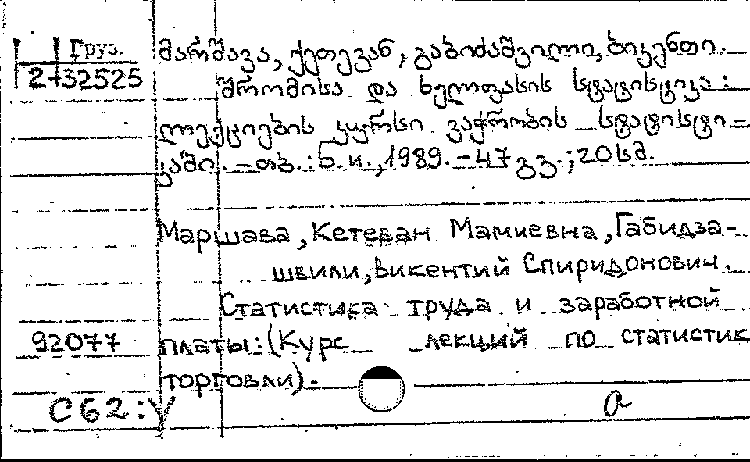 Груз.
2-32525
მარშავა, ქეთევან, გაბიძაშვილი, ბიკენტი.
შრომისა და ხელფასის სტატისტიკა:
ლექციების კურსი ვაჭრობის სტატისტი-
კაში. – თბ.: Б.и., 1989. – 47 გვ.; 20 სმ.
Маршава, Кетеван Мамиевна, Габидза-
швили, Викентий Спиридонович.
Статистика труда и заработной
92077
платы: (Курс лекций по статистик
торговли).
С62:У
а